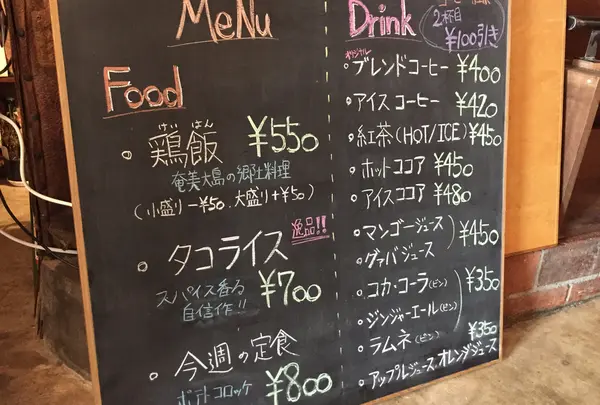 MeNu
Food
けいはん
鶏飯 ¥550
奄美大島の郷土料理
(小盛り-¥50、大盛り+¥50)
逸品!!
タコライス
スパイス香る
自信作!! ¥700
今週の定食
ポテトコロッケ ¥800
Drink
2杯目
¥100引き
オリジナル
ブレンドコーヒー ¥400
アイスコーヒー ¥420
紅茶(HOT/ICE) ¥450
ホットココア ¥450
アイスココア ¥480
マンゴージュース
グァバジュース ¥450
コカ・コーラ(ビン)
ジンジャーエール(ビン) ¥350
ラムネ(ビン)
¥350
アップルジュース、オレンジジュース